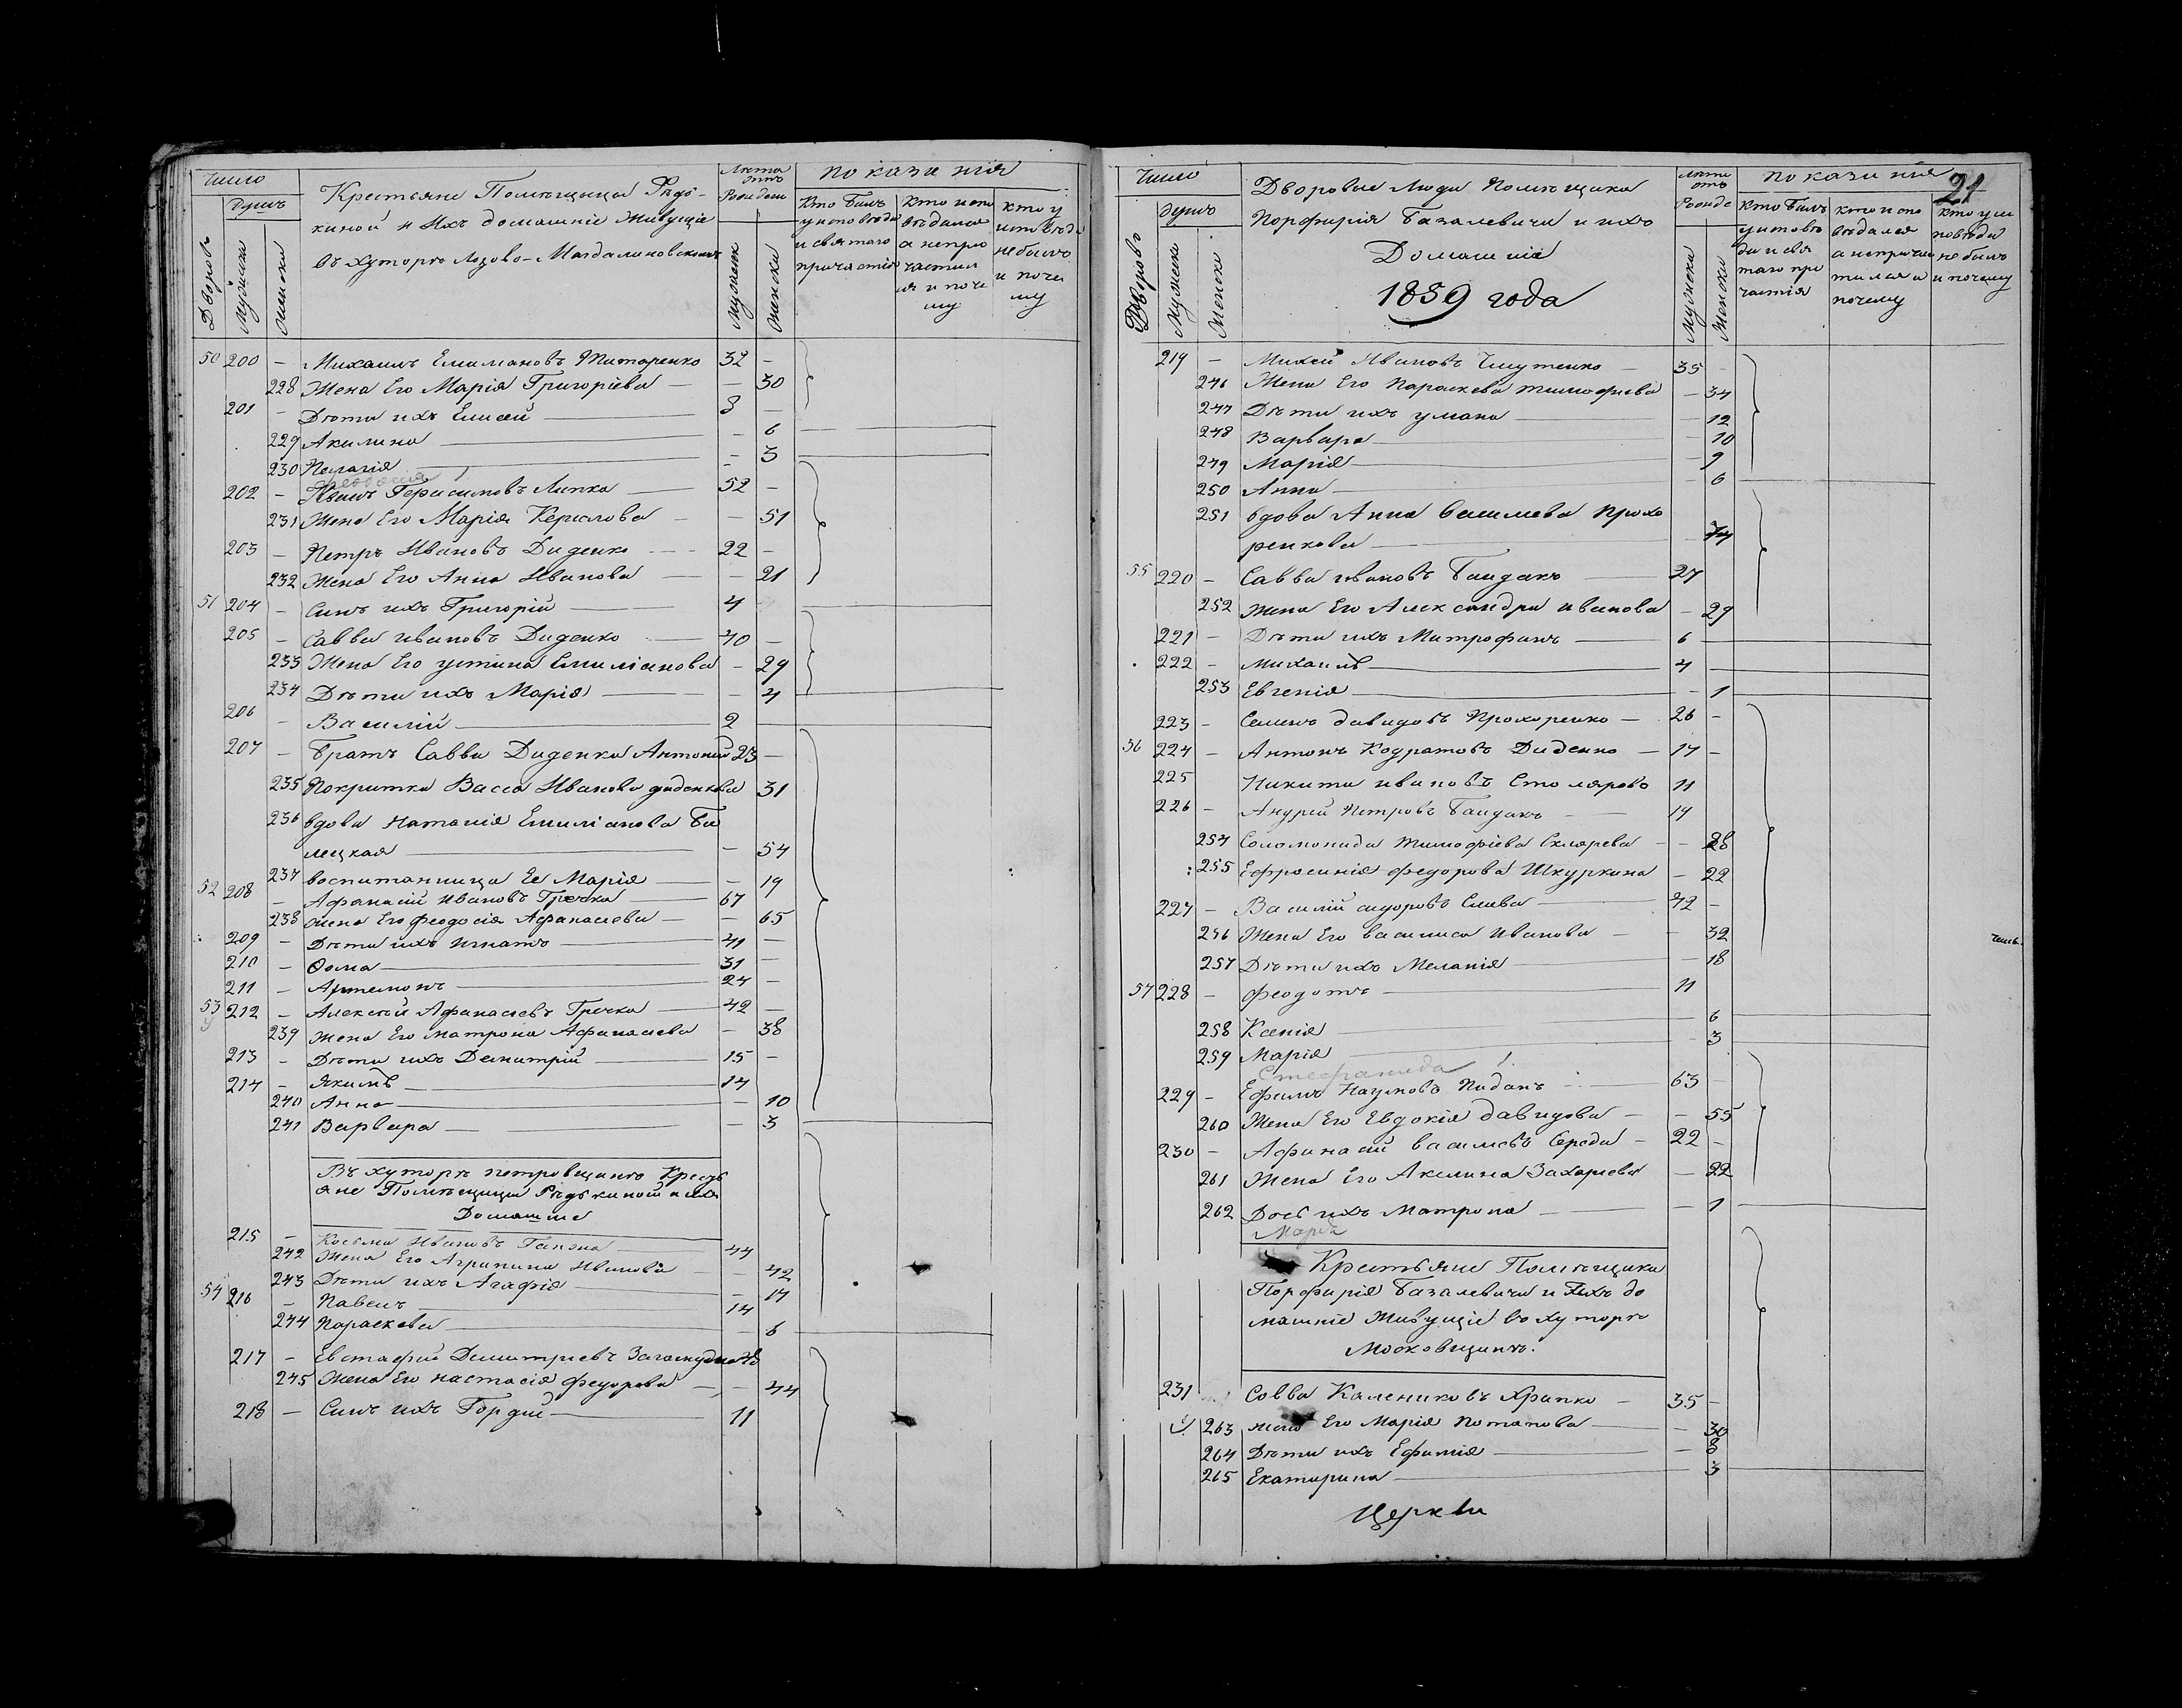 Число
Душъ
Дворовъ
Мужска
Женска
Крестьяне Помѣщицы Рѣдь-
киной и Ихъ домашніе Живущіе
въ хуторѣ Лозово-Магдалиновскомъ
Лѣта
отъ
Рожден
Мужеск
Женска
показанія
Кто былъ
у исповѣди
и святаго
причастія
Кто испо
вѣдался
а непріо
частил
ся и поче
му
Кто у
исповѣди
не былъ
и поче
му
50 200 – Михаилъ Емимановъ Титаренко 32 –
228 Жена Его Марія Григоріева – 30
201 – Дѣти ихъ Елисей 8 –
229 Акилина – 6
230 Пелагія – 3
Феодосія 1
202 – Иванъ Герасимовъ Липка 52 –
231 Жена Его Марія Кирилова – 51
203 – Петръ Ивановъ Диденко 22 –
232 Жена Его Анна Иванова – 21
51 204 – Синъ ихъ Григорій 4
205 – Савва ивановъ Диденко 40 –
233 Жена Его устина Емиліанова – 29
234 Дѣти ихъ Марія – 4
206 – Василій 2
207 – Братъ Саввы Диденка Антоній 23 –
235 Покритка Васса Иванова диденкова 31
236 вдова Наталія Емиліанова Би
лецкая – 54
237 воспитанница Ее Марія – 19
52 208 – Афанасій Ивановъ Гречка 67
238 жена Его феодосія Афанасіева – 65
209 – Дѣти ихъ Игнатъ 41 –
210 – Ѳома 31 –
211 – Артемонъ 24 –
53 212 – Алексѣй Афанасіевъ Гречка 42 –
239 Жена Его матрона Афанасіева – 38
213 – Дѣти ихъ Димитрій 15 –
214 – Якимъ 14
240 Анна – 10
241 Варвара – 3
Въ хуторѣ петровщинѣ Крестъ
яне Помѣщицы Рѣдькиной и ихъ
Домашніе
215 – Косьма Ивановъ Гапона 44
242 Жена Его Агрипина Иванова – 42
243 Дѣти ихъ Агафія – 17
54 216 – Павелъ 14
244 Параскева – 6
217 – Евстафій Димитріевъ 48
245 Жена Его настасія федорова – 44
218 – Синъ ихъ Гордій 11
21
Число
Душъ
Дворовъ
Мужска
Женска
Дворовые Люди Помѣщика
Порфирія Базалевича и ихъ
Домашнія
1859 года
Лѣта
отъ
Рожде
Мужска
Женска
показанія
Кто былъ
у исповѣ
ди и свя
таго при
частія
кто испо
вѣдался
а непричас
тился и
почему
кто у ис
повѣди
не былъ
и почему
219 – Михей Ивановъ 35 –
246 Жена Его Параскева тимофіева – 34
247 Дѣти ихъ улиана – 12
248 Варвара – 10
249 Марія – 9
250 Анна – 6
251 вдова Анна Василіева Прохо
ренкова – 74
55 220 – Савва ивановъ Байдакъ 27
252 жена Его Александра иванова – 29
221 – Дѣти ихъ Митрофанъ 6
222 – михаилъ 4
253 Евгенія – 1
223 – Семенъ давидовъ Прохоренко 26 –
56 224 – Антонъ Кодратовъ Диденко 17 –
225 Никита ивановъ Столяровъ 11
226 – Андрей Петровъ Байдакъ 14
254 Соломонида тимофіева Склярева – 28
255 Ефросинія федорова Шкуркина – 22
227 – Василій сидоровъ Слива 42 –
256 Жена Его василиса Иванова – 32
257 Дѣти ихъ Меланія – 18
57 228 – феодотъ 11
258 Ксенія – 6
259 Марія – 3
Стефанида 1
229 – Ефимъ Наумовъ Пидакъ 63 –
260 Жена Его Евдокія давидова – 55
230 – Афанасій василіевъ Середа 22 –
261 Жена Его Акилина Захаріева – 22
262 Дочь ихъ Матрона – 1
Марія
Крестьяне Помѣщика
Порфирія Базалевича и Ихъ до
машніе Живущіе въ хуторѣ
Московщинѣ.
231 Савва Калениковъ Храпко 35 –
263 жена Его Марія Потапова – 30
264 Дѣти ихъ Ефимія – 8
265 Екатерина – 3
Церкви